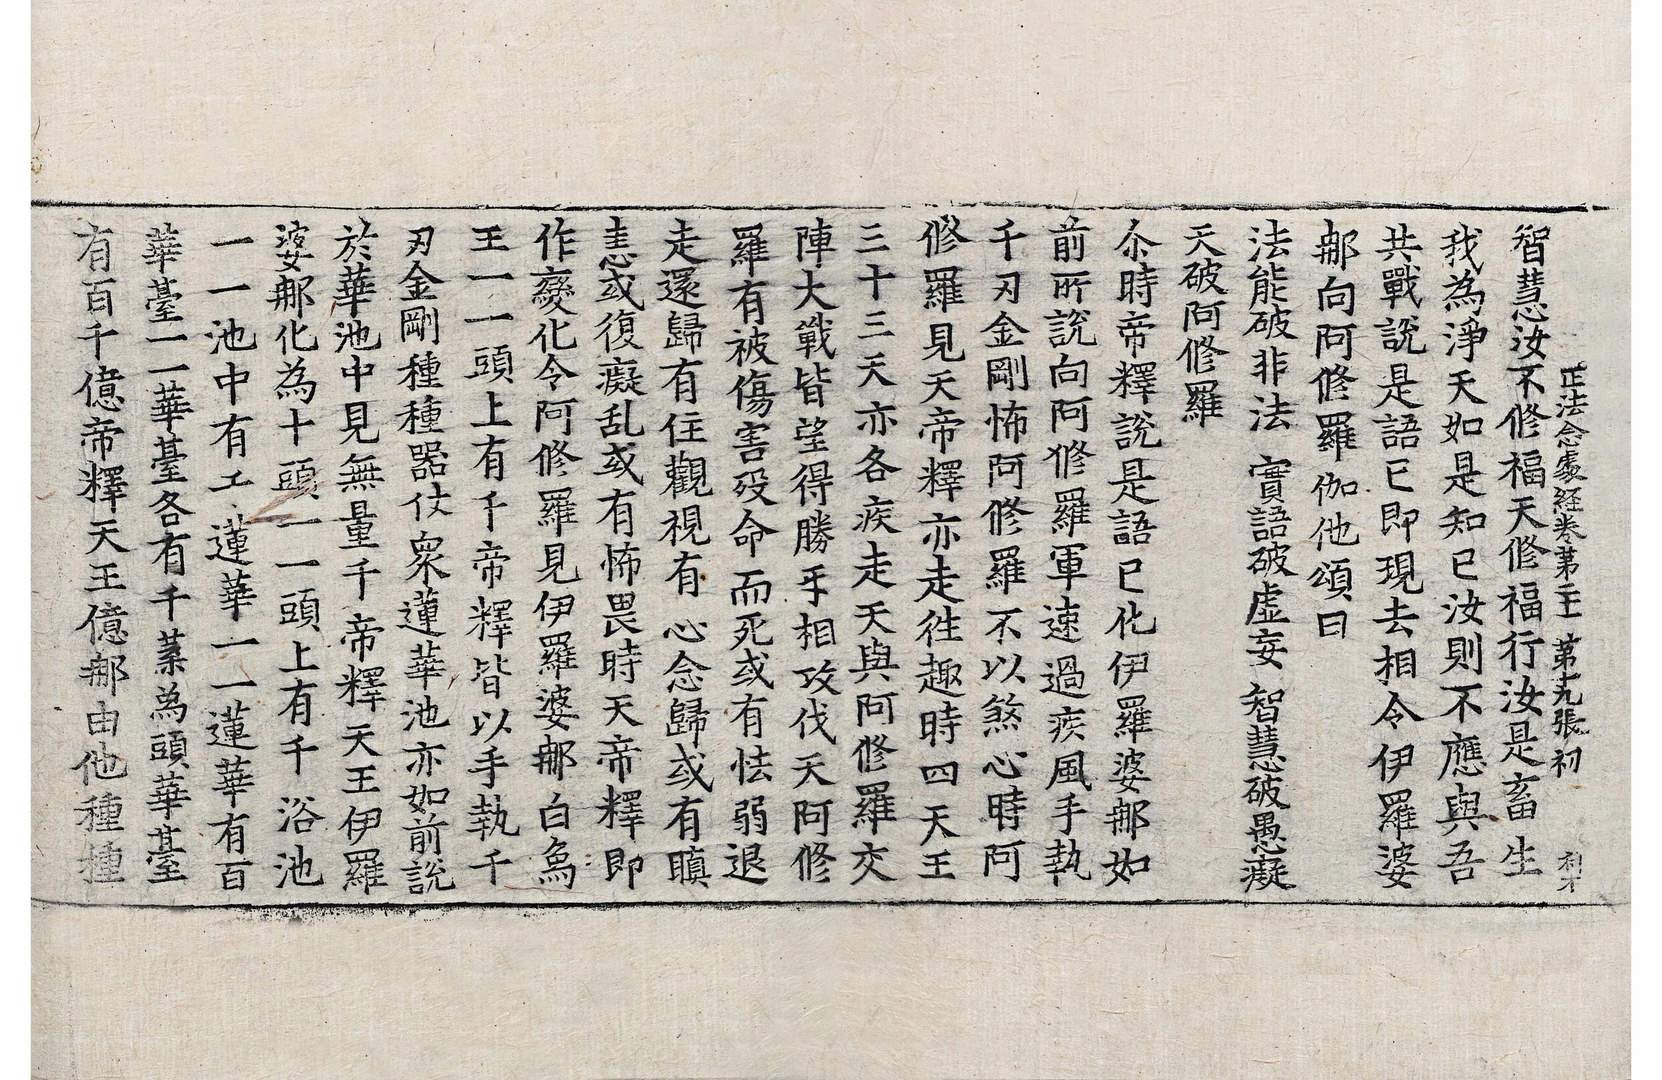 正法念處經卷第二十一 第十九張 初
智慧汝不修福天修福行汝是畜生
我為淨天如是知已汝則不應與吾
共戰說是語已即現去相令伊羅婆
那向阿修羅伽他頌曰
法能破非法 實語破虛妄 智慧破愚癡
天破阿修羅
尒時帝釋說是語已化伊羅婆那如
前所說向阿修羅軍速過疾風手執
千刃金剛怖阿修羅不以煞心時阿
修羅見天帝釋亦走往趣時四天王
三十三天亦各疾走天與阿修羅交
陣大戰皆望得勝手相攻伐天阿修
羅有被傷害殁命而死或有怯弱退
走還歸有住觀視有心念歸或有瞋
恚或復癡乱或有怖畏時天帝釋即
作變化令阿修羅見伊羅婆那白烏
王一一頭上有千帝釋皆以手執千
刃金剛種種器仗眾蓮華池亦如前說
於華池中見無量千帝釋天王伊羅
婆那化為十頭一一頭上有千浴池
一一池中有千蓮華一一蓮華有百
華臺一一華臺各有千葉為頭華臺
有百千億帝釋天王億那由他種種